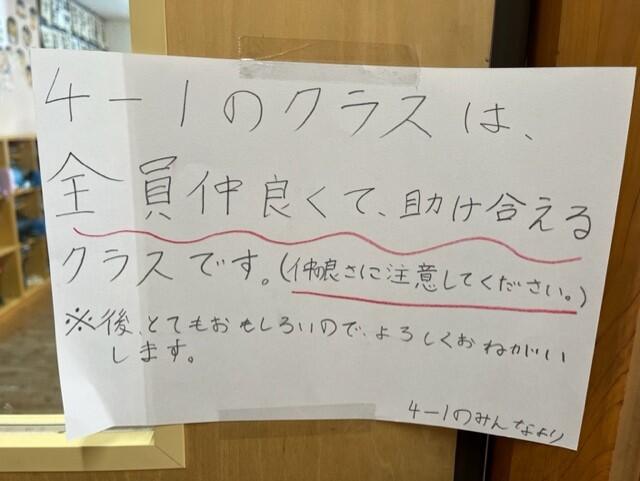 4-1のクラスは、
全員仲良くて、助け合える
クラスです。(仲良さに注意してください。)
※後、とてもおもしろいので、よろしくおねがい
します。
4-1のみんなより